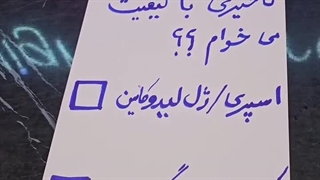 تاخیری با کیفیت
می خوام ؟؟
اسپری/ژل لیدوکاین